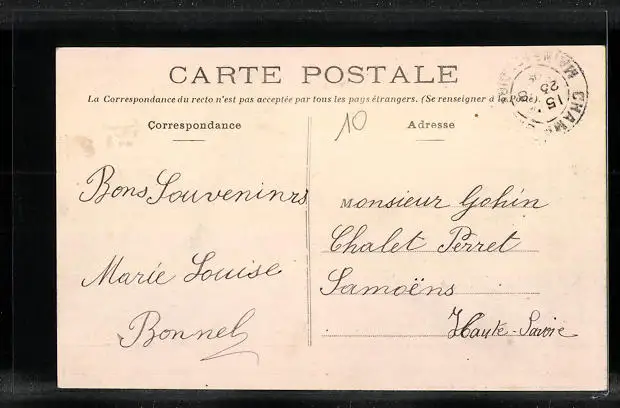 CARTE POSTALE
La Correspondance du recto n'est pas acceptée par tous les pays étrangers. (Se renseigner à la Poste)
Correspondance
10
Adresse
Bons Souveninrs
Marie Louise
Bonnel
Monsieur Gohin
Chalet Perret
Samoëns
Haute-Savoie
15
23